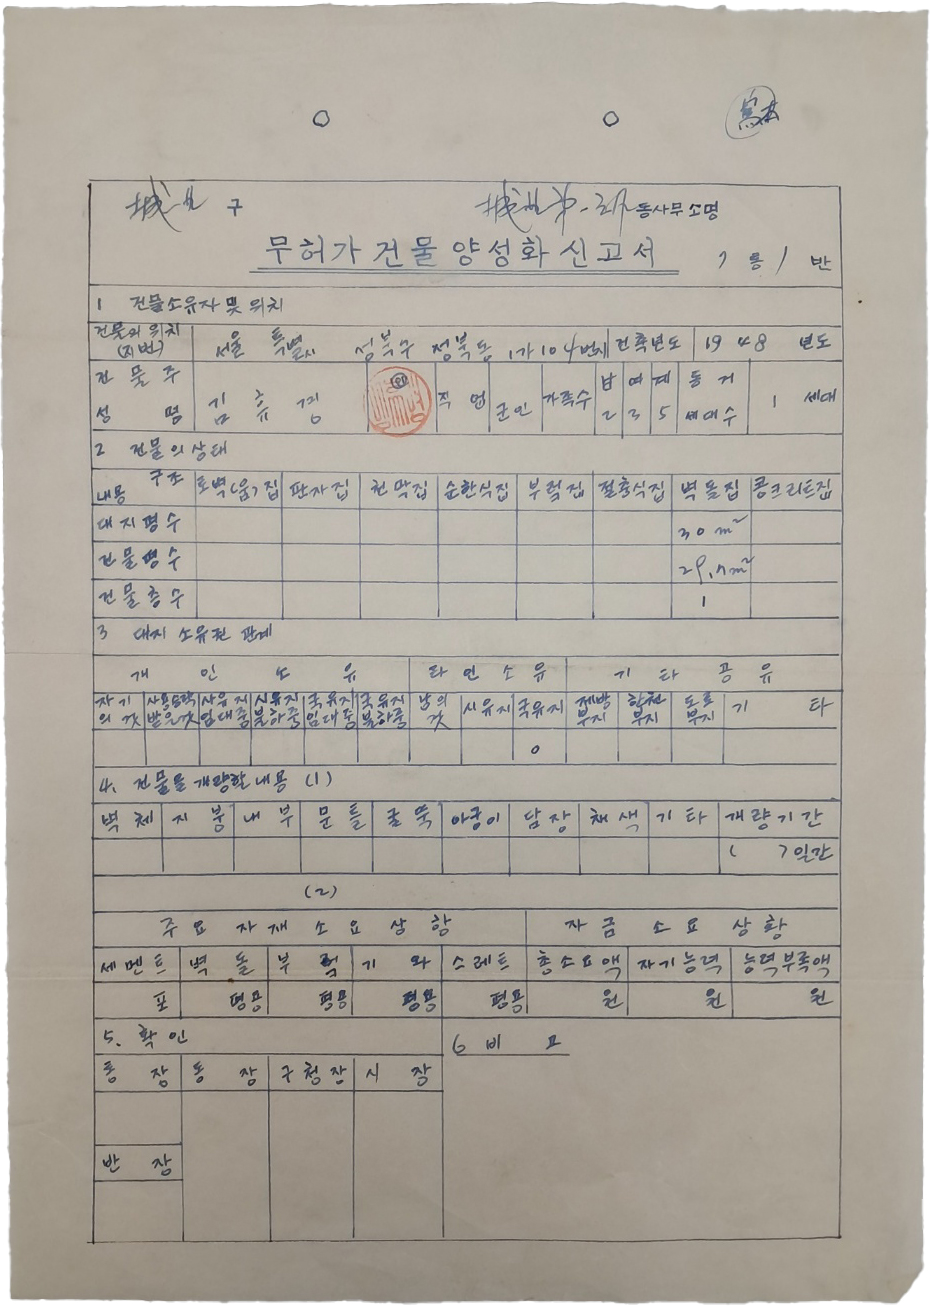 寫本
城北 구 城北第一洞 동사무소명
무허가 건물 양성화 신고서
7 통 1 반
1 건물소유자 및 위치
건물의 위치 (지번) 서울 특별시 성북구 성북동 1가 104번지 건축년도 1948 년도
건물주 성명 김 직업 군인 가족수 남 2 여 3 계 5 동거 세대수 1 세대
2 건물의 상태
구조 내용 토벽(움)집 판자집 천막집 순한식집 부럭집 절충식집 벽돌집 콩크리트집
대지평수 30 m²
건물평수 29.7m²
건물층수 1
3 대지 소유권 관계
개인소유 타인소유 기타공유
자기의 것 사용승락 받은 것 사유지 임대중 시유지 불하중 국유지 임대중 국유지 불하중 남의 것 시유지 국유지 제방부지 하천부지 도로부지 기타
o
4. 건물을 개량할 내용 (1)
벽체 지붕 내부 문틀 굴뚝 아궁이 담장 채색 기타 개량기간
( )일간
(2)
주요자재소요상황 자금소요상황
세멘트 벽돌 부럭 기와 스레트 총소요액 자기능력 능력부족액
포 평용 평용 평용 평용 원 원 원
5. 확인
6 비고
통장 동장 구청장 시장
반장